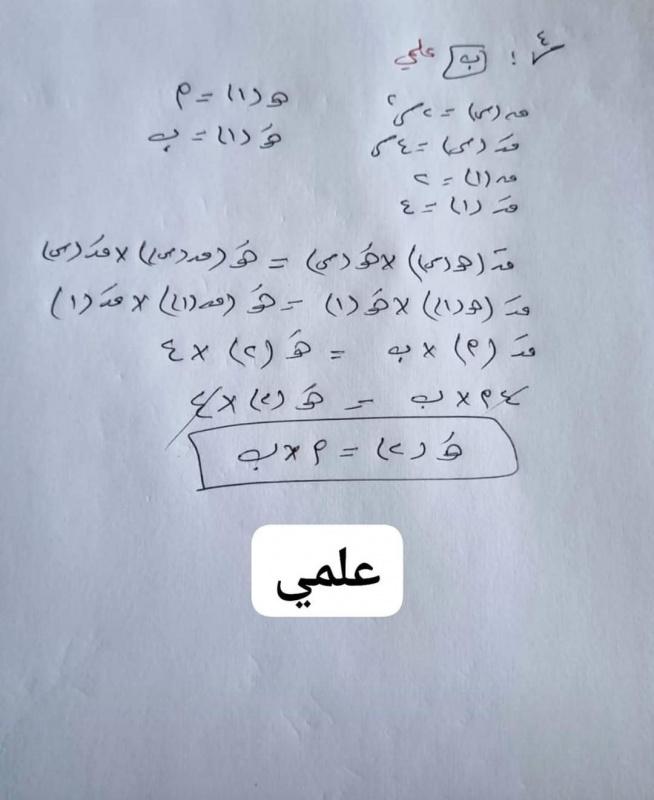 ٤ : ب علمي
هـ(١) = م
هـَ(١) = ب
ق(س) = ٢س٢
قَ(س) = ٤س
ق(١) = ٢
قَ(١) = ٤
قَ(هـ(س)) × هـَ(س) = هـَ(ق(س)) × قَ(س)
قَ(هـ(١)) × هـَ(١) = هـَ(ق(١)) × قَ(١)
قَ(م) × ب = هـَ(٢) × ٤
٤م × ب = هـَ(٢) × ٤
هـَ(٢) = م × ب
علمي